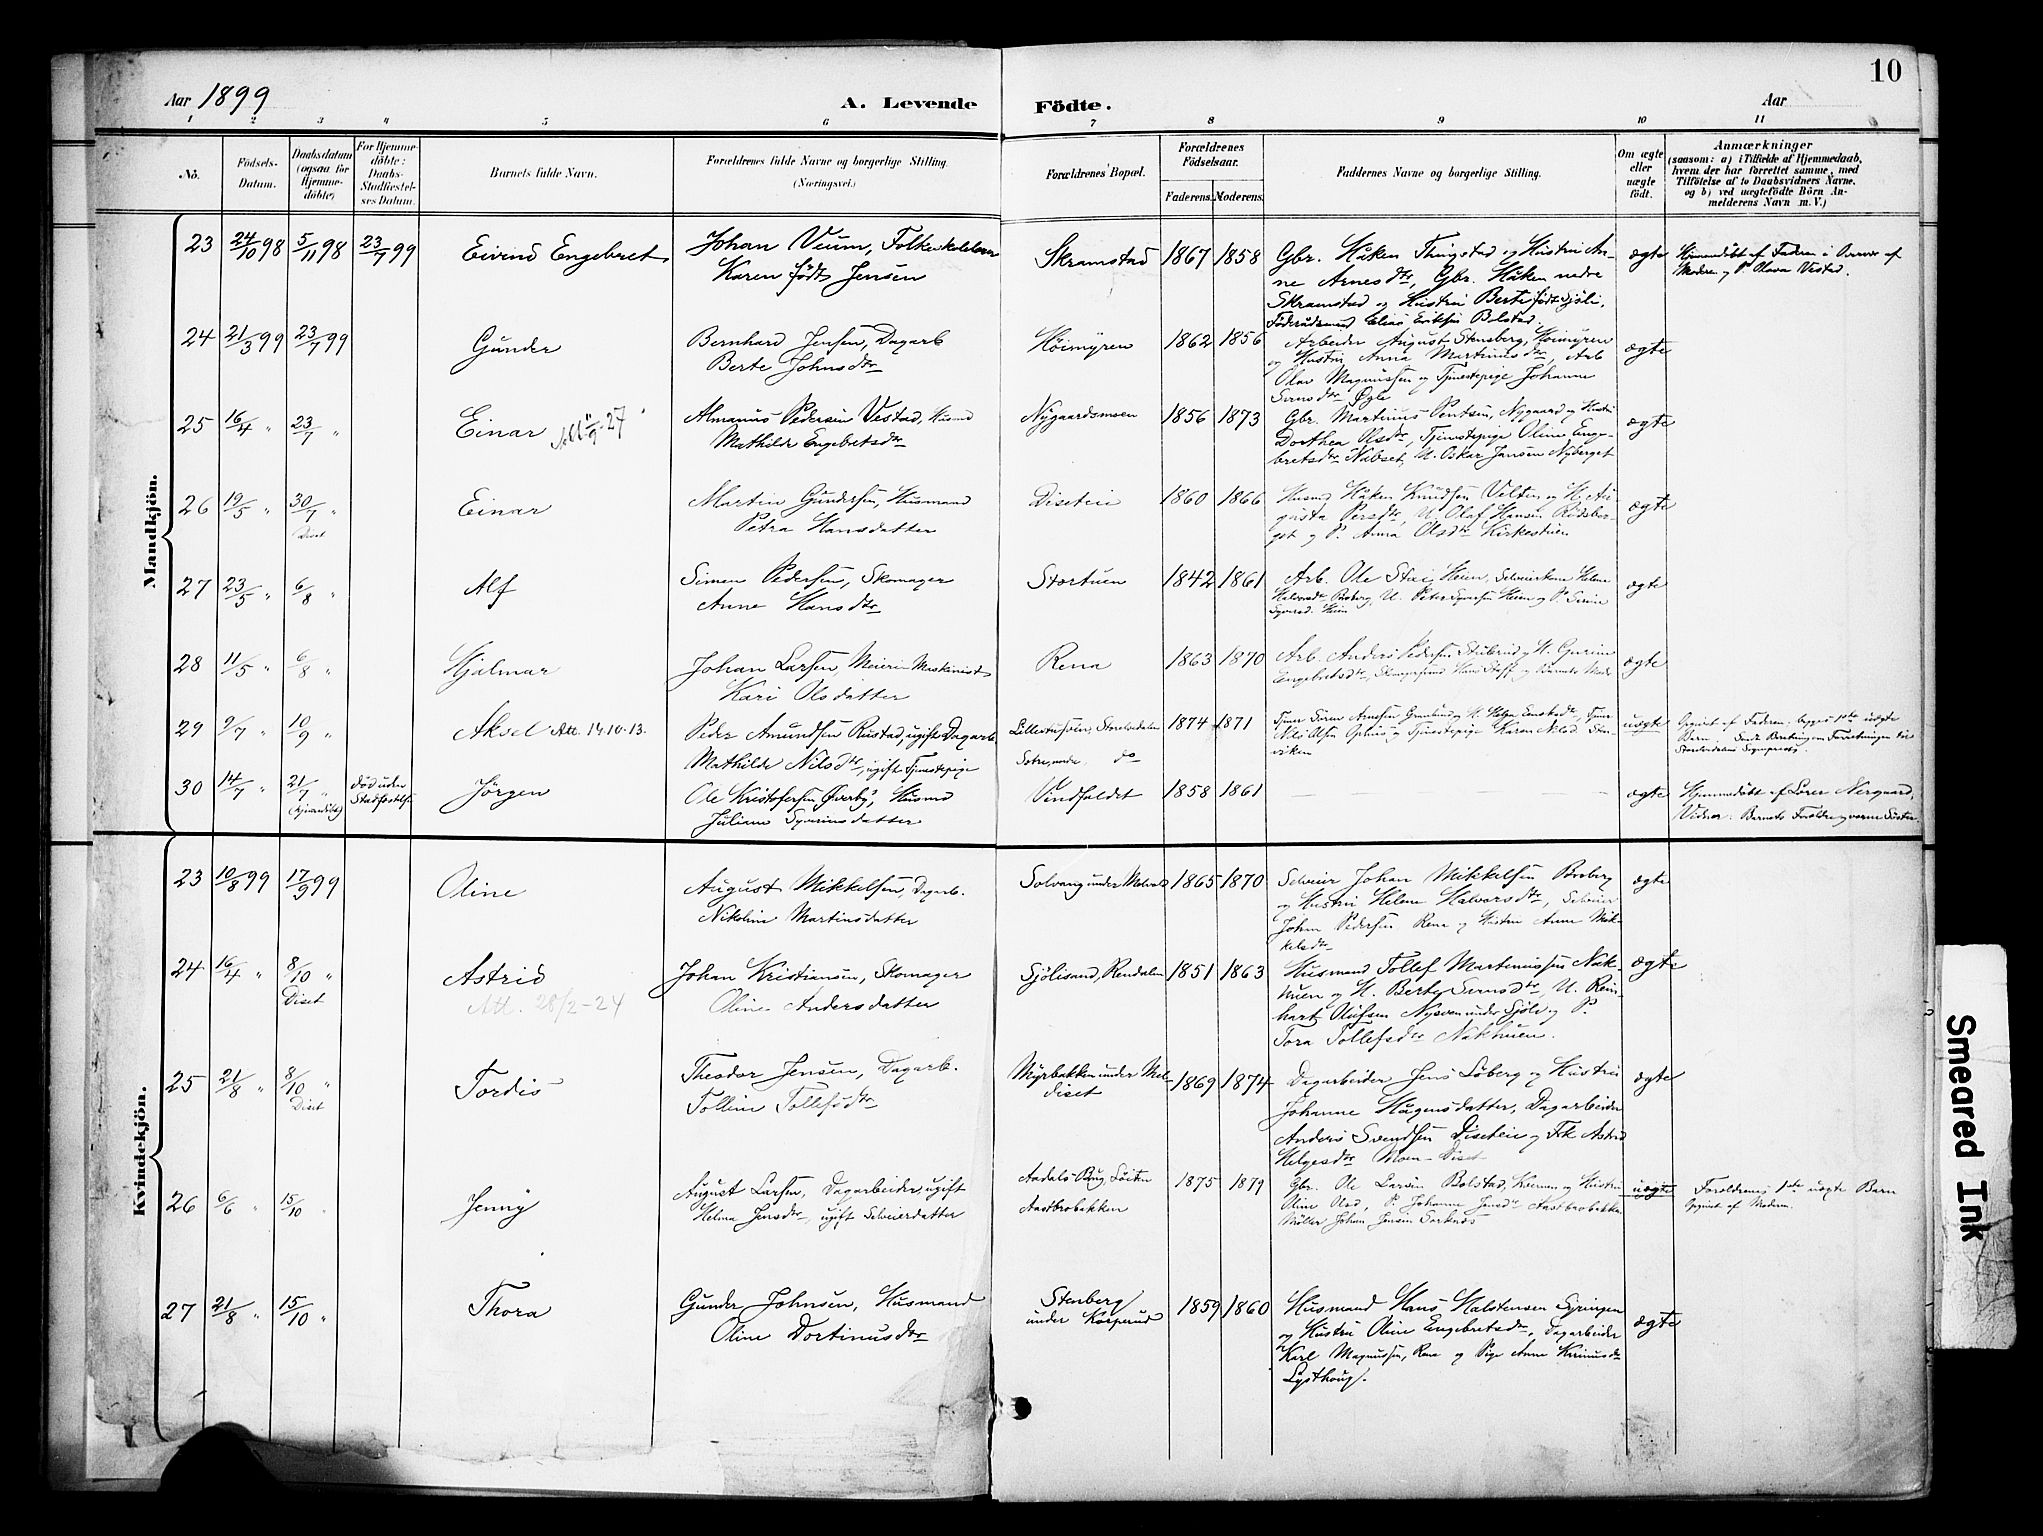 Aar 1899
A. Levende
Födte.
Aar
10
1 2 3 4 5 6 7 8 9 10 11
No.
Födsels-
Datum.
Daabsdatum
(ogsaa for
Hjemme-
döbte)
For Hjemme-
döbte:
Daabs-
Stadfæstel-
ses Datum.
Barnets fulde Navn.
Forældrenes fulde Navne og borgerlige Stilling.
(Næringsvei.)
Forældrenes Bopæl.
Forældrenes
Födselsaar.
Faderens.
Moderens.
Faddernes Navne og borgerlige Stilling.
Om ægte
eller
uægte
født.
Anmærkninger
(saasom: a) i Tilfælde af Hjemmedaab,
hvem der har forrettet samme, med
Tilföielse af to Daabsvidners Navne,
og b) ved uægtefödte Börn An-
melderens Navn m. V.)
Mandkjön.
23 24/10 98 5/11 98 23/7 99 Eivind Engebret
Johan Veum, Folkeskolelærer
Karen född Jensen
Skramstad 1867 1858
Gbr. Håken Tingstad og Hustru An-
ne Arnesdtr, Gbr. Håken nedre
Skramstad og Hustru Berte född Sjöli,
Föderådsmand Eliås Eriksen Bolstad.
ægte
Hjemmedöbt af Faderen i Overvær af
Moderen og P. Olava Vestad.
24 21/3 99 23/7 99 Gunder
Bernhard Jensen, Dagarb
Berte Johnsdtr
Höimyren 1862 1856
Arbeider August Stensberg, Höimyren
og Hustru Anna Martinusdtr, Arb
Olav Magnussen og Tjenestepige Johanne
Simsdtr Ögle
ægte
25 16/4 " 23/7 " Einar Att 11/9 27
Almanus Pedersen Vestad, Husmd
Mathilde Engebretsdtr
Nygaardsmoen 1856 1873
Gbr. Martinus Pentsen, Nygaard og Hustru
Dorthea Olsdtr, Tjenestepige Oline Enge-
bretsdtr Nabset, U. Oskar Jansen Nyberget
ægte
26 19/5 " 30/7 " Diset Einar
Martin Gundersen, Husmand
Petra Hansdatter
Diseteie 1860 1866
Husmd Håken Knudsen Velten og H. Au-
gusta Persdtr, U. Olaf Hansen Rödsber-
get og P. Anna Olsdtr Kirkestuen
ægte
27 23/5 " 6/8 " Alf
Simen Pedersen, Skomager
Anne Hansdtr
Stortuen 1842 1861
Arb. Ole Stai Heien, Selveierkone Helene
Halvorsdtr Broberg, U. Peter Syversen Heien og P. Serine
Syversd. Heien
ægte
28 11/5 " 6/8 " Hjalmar
Johan Larsen, Meieri Maskinist
Kari Olsdatter
Rena 1863 1870
Arb. Anders Pedersen Stubrud og H. Gurine
Engebretsdtr,
ægte
29 9/7 " 10/9 " Aksel Att. 14.10.13.
Peder Amundsen Rustad, ugift Dagarb.
Mathilde Nilsdtr, ugift Tjenestepige
Lillestusölen, Storelvdalen
Sotre, nordre do
1874 1871
uægte
Opgivet af Faderen: begges 1ste uægte
Barn.
30 14/7 " 21/7 " (hjemdöbt) död uden
Stadfæstelse
Jörgen
Ole Kristofersen Överby, Husmd
Juliane Syverinsdatter
Vindfaldet 1858 1861
ægte
Hjemmedöbt af Lærer Nergaard,
Vidner: Barnets Forældre og voxne Söster
Kvindekjön.
23 10/8 99 17/9 99 Oline
August Mikkelsen, Dagarb.
Nikoline Martinsdatter
Solvang under Melvold 1865 1870
Selveier Johan Mikkelsen Broberg
og Hustru Helene Halvorsdtr, Selveier
John Pedersen Rena og Hustru Anne Mik-
kelsdtr
ægte
24 16/4 " 8/10 " Diset Astrid
Att. 28/2-24
Johan Kristiansen, Skomager
Oline Andersdatter
Sjölisand, Rendalen 1851 1863
Husmand Tollef Martinussen Nak-
huen og H. Berte Simsdtr, U. Rein-
hart Olufsen Nysveen under Sjöli og P.
Tora Tollefsdtr Nakhuen.
ægte
25 21/8 " 8/10 " Diset Tordis
Theodor Jensen, Dagarb.
Tolline Tollefsdtr
Myrbakken under Mel-
diset 1869 1874
Dagarbeider Jens Löberg og Hustru
Johanne Hågensdatter, Dagarbeider
Anders Svendsen Diseteie og Frk Astrid
Helgesdtr Moen - Diset
ægte
26 6/6 " 15/10 " Jenny
August Larsen, Dagarbeider, ugift
Helma Jensdtr, ugift Selveierdatter
Aadals-Brug, Löiten
Aastbrobakken
1875 1879
Gbr. Ole Larsen Bolstad, Löiten og Hustru
Oline Olsd, P. Johanne Jensdtr Aastbrobakken
Möller Johan Jensen Sorknes
uægte
Forældrenes 1ste uægte Barn
Opgivet af Moderen.
27 21/8 " 15/10 " Thora
Gunder Johnsen, Husmand
Oline Dortinusdtr
Stenberg
under Kärperud 1859 1860
Husmand Hans Halstensen Syringen
og Hustru Oline Engebretsdtr, Dagarbeider
Karl Magnussen, Rena og Pige Anne Kristiansdtr
Lysthaug.
ægte
Smeared Ink